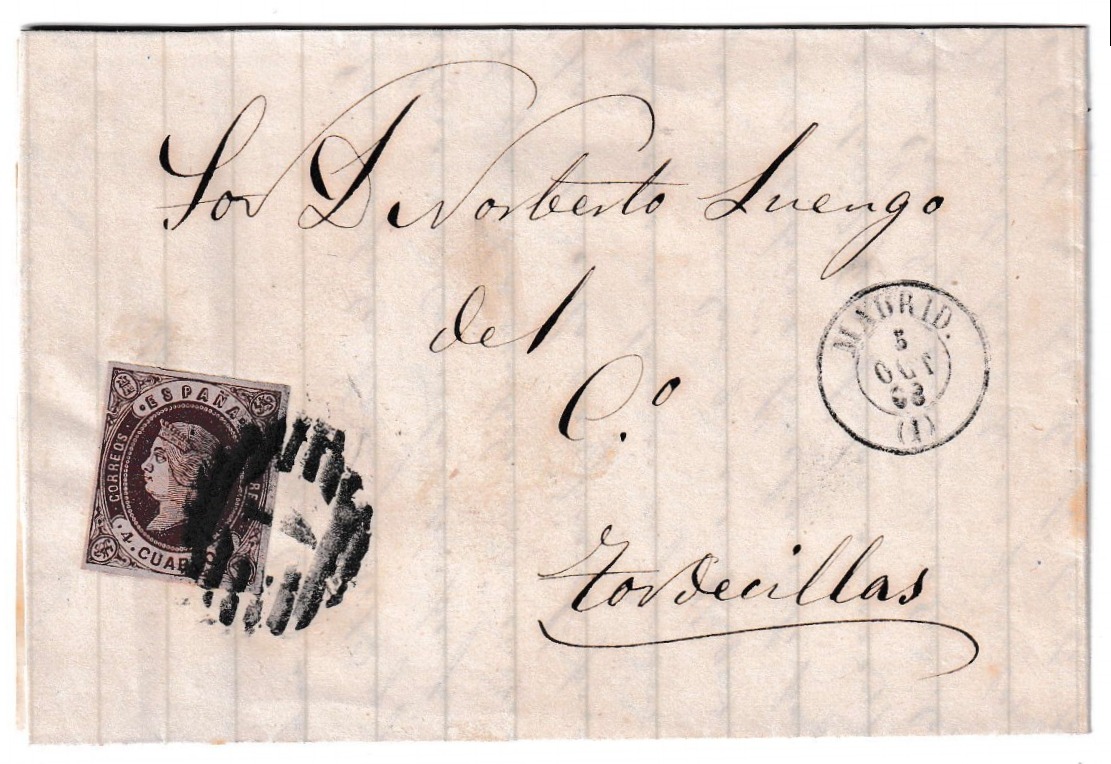 Sor D Norberto Luengo
del
C.º
Tordecillas
MADRID.
5
OCT
63
(1)
ESPAÑA
CORREOS
4 CUAR